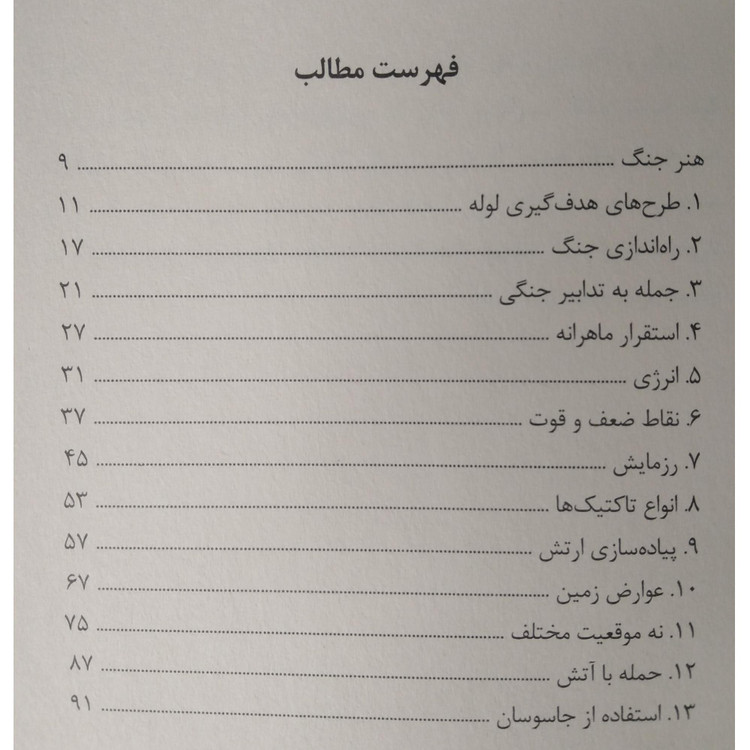 فهرست مطالب
هنر جنگ ........ ۹
۱. طرح‌های هدف‌گیری لوله ........ ۱۱
۲. راه‌اندازی جنگ ........ ۱۷
۳. جمله به تدابیر جنگی ........ ۲۱
۴. استقرار ماهرانه ........ ۲۷
۵. انرژی ........ ۳۱
۶. نقاط ضعف و قوت ........ ۳۷
۷. رزمایش ........ ۴۵
۸. انواع تاکتیک‌ها ........ ۵۳
۹. پیاده‌سازی ارتش ........ ۵۷
۱۰. عوارض زمین ........ ۶۷
۱۱. نه موقعیت مختلف ........ ۷۵
۱۲. حمله با آتش ........ ۸۷
۱۳. استفاده از جاسوسان ........ ۹۱